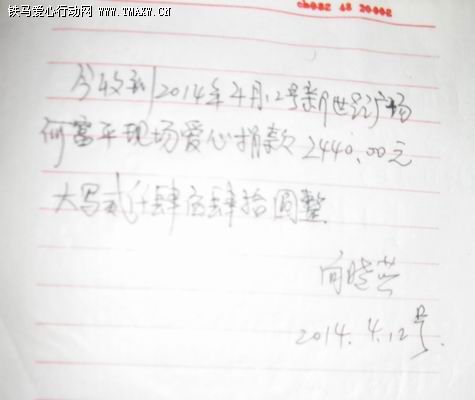 铁马爱心行动网 WWW.TMAXW.CN
ch082 48 20002
今收到2014年4月12号新世纪广场
何富平现场爱心捐款2440.00元
大写贰仟肆佰肆拾圆整
向晓芸
2014.4.12号.